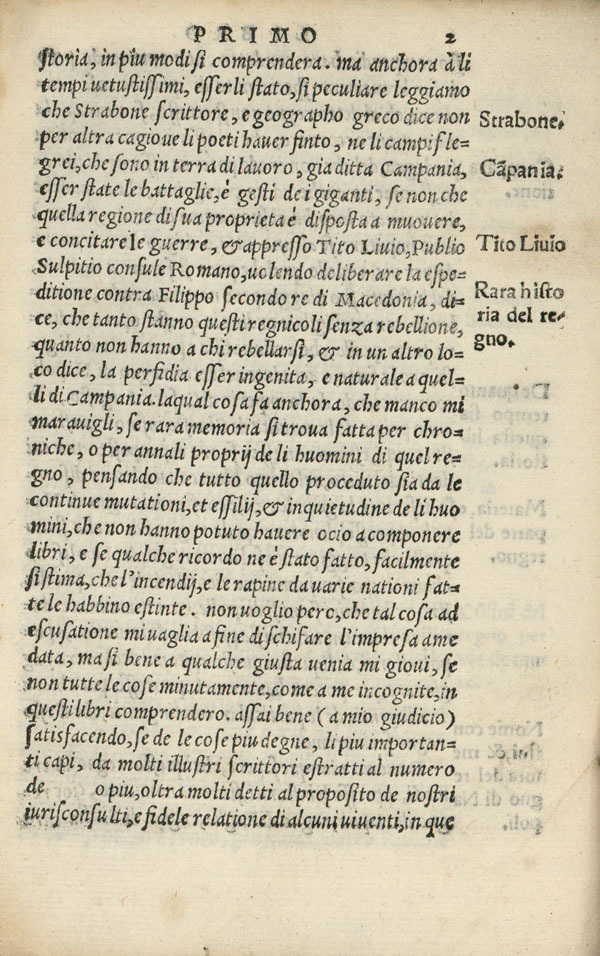 PRIMO 2
storia, in piu modi si comprendera. ma anchora à li
tempi uetustissimi, esserli stato, si peculiare leggiamo
che Strabone scrittore, e geographo greco dice non
per altra cagioue li poeti hauer finto, ne li campi fle=
grei, che sono in terra di lauoro, gia ditta Campania,
esser state le battaglie, è gesti de i giganti, se non che
quella regione di sua proprieta è disposta a muouere,
e concitare le guerre, & appresso Tito Liuio, Publio
Sulpitio consule Romano, uolendo deliberare la espe=
ditione contra Filippo secondo re di Macedonia, di=
ce, che tanto stanno questi regnicoli senza rebellione,
quanto non hanno a chi rebellarsi, & in un altro lo=
co dice, la perfidia esser ingenita, e naturale a quel=
li di Campania. laqual cosa fa anchora, che manco mi
marauigli, se rara memoria si troua fatta per chro=
niche, o per annali proprij de li huomini di quel re=
gno, pensando che tutto quello proceduto sia da le
continue mutationi, et essilij, & inquietudine de li huo
mini, che non hanno potuto hauere ocio a componere
libri, e se qualche ricordo ne è stato fatto, facilmente
si stima, che l'incendij, e le rapine da uarie nationi fat=
te le habbino estinte. non uoglio pero, che tal cosa ad
escusatione mi uaglia a fine di schifare l'impresa a me
data, ma si bene a qualche giusta uenia mi gioui, se
non tutte le cose minutamente, come a me incognite, in
questi libri comprendero. assai bene (a mio giudicio)
satisfacendo, se de le cose piu degne, li piu importan=
ti capi, da molti illustri scrittori estratti al numero
de o piu, oltra molti detti al proposito de nostri
iurisconsulti, e fidele relatione di alcuni uiuenti, in que
Strabone.
Cãpania.
Tito Liuio
Rara histo
ria del re=
gno.